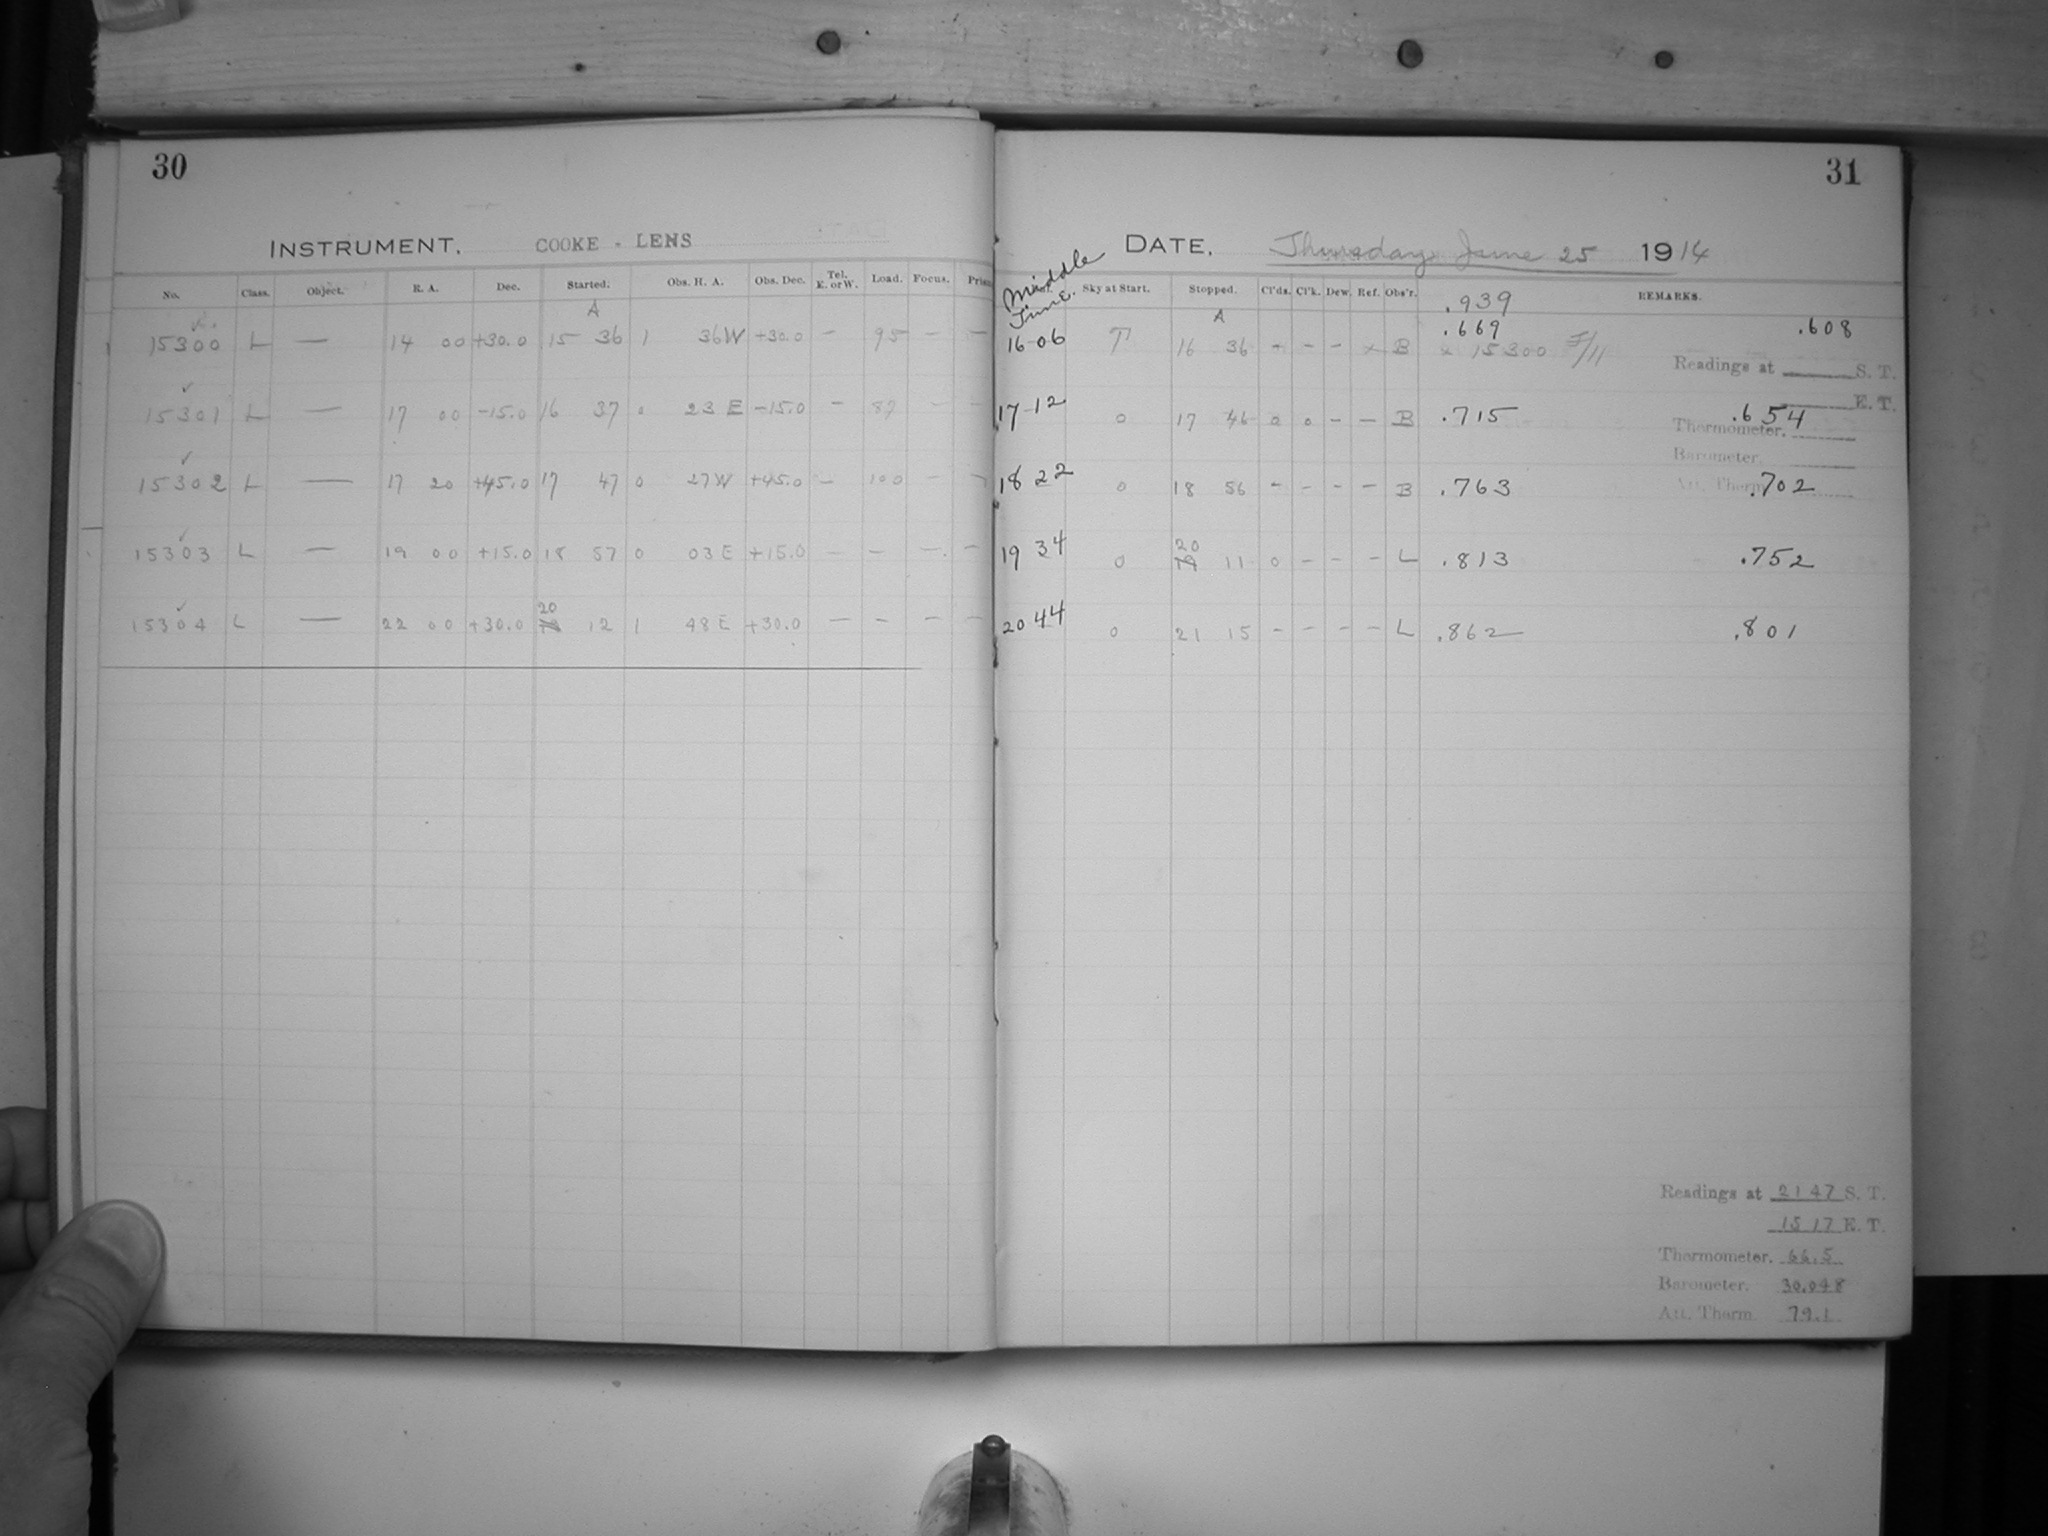 30
31
INSTRUMENT. COOKE - LENS
DATE. Thursday June 25 1914
No. Class. Object. R. A. Dec. Started. Obs. H. A. Obs. Dec. Tel. E. or W. Load. Focus.
Middle Time. Sky at Start. Stopped. Cl'ds. Cl'k. Dew. Ref. Obs'r. REMARKS.
A
A
.939
15300 L — 14 00 +30.0 15 36 1 36 W +30.0 — 95 — —
16-06 T 16 36 - - - x B .669 .608
x 15300 F/11
Readings at S. T.
E. T.
15301 L — 17 00 -15.0 16 37 0 23 E -15.0 - 87 — —
17-12 0 17 46 0 0 - - B .715 .654
Thermometer.
Barometer.
15302 L — 17 20 +45.0 17 47 0 27 W +45.0 — 100 — —
18 22 0 18 56 - - - - B .763 .702
Att. Therm
15303 L — 19 00 +15.0 18 57 0 03 E +15.0 — — — —
19 34 0 20 19 11 0 - - - L .813 .752
15304 L — 22 00 +30.0 20 19 12 1 48 E +30.0 — — — —
20 44 0 21 15 - - - - L .862 .801
Readings at 21 47 S. T.
15 17 E. T.
Thermometer. 66.5
Barometer. 30.048
Att. Therm 79.1